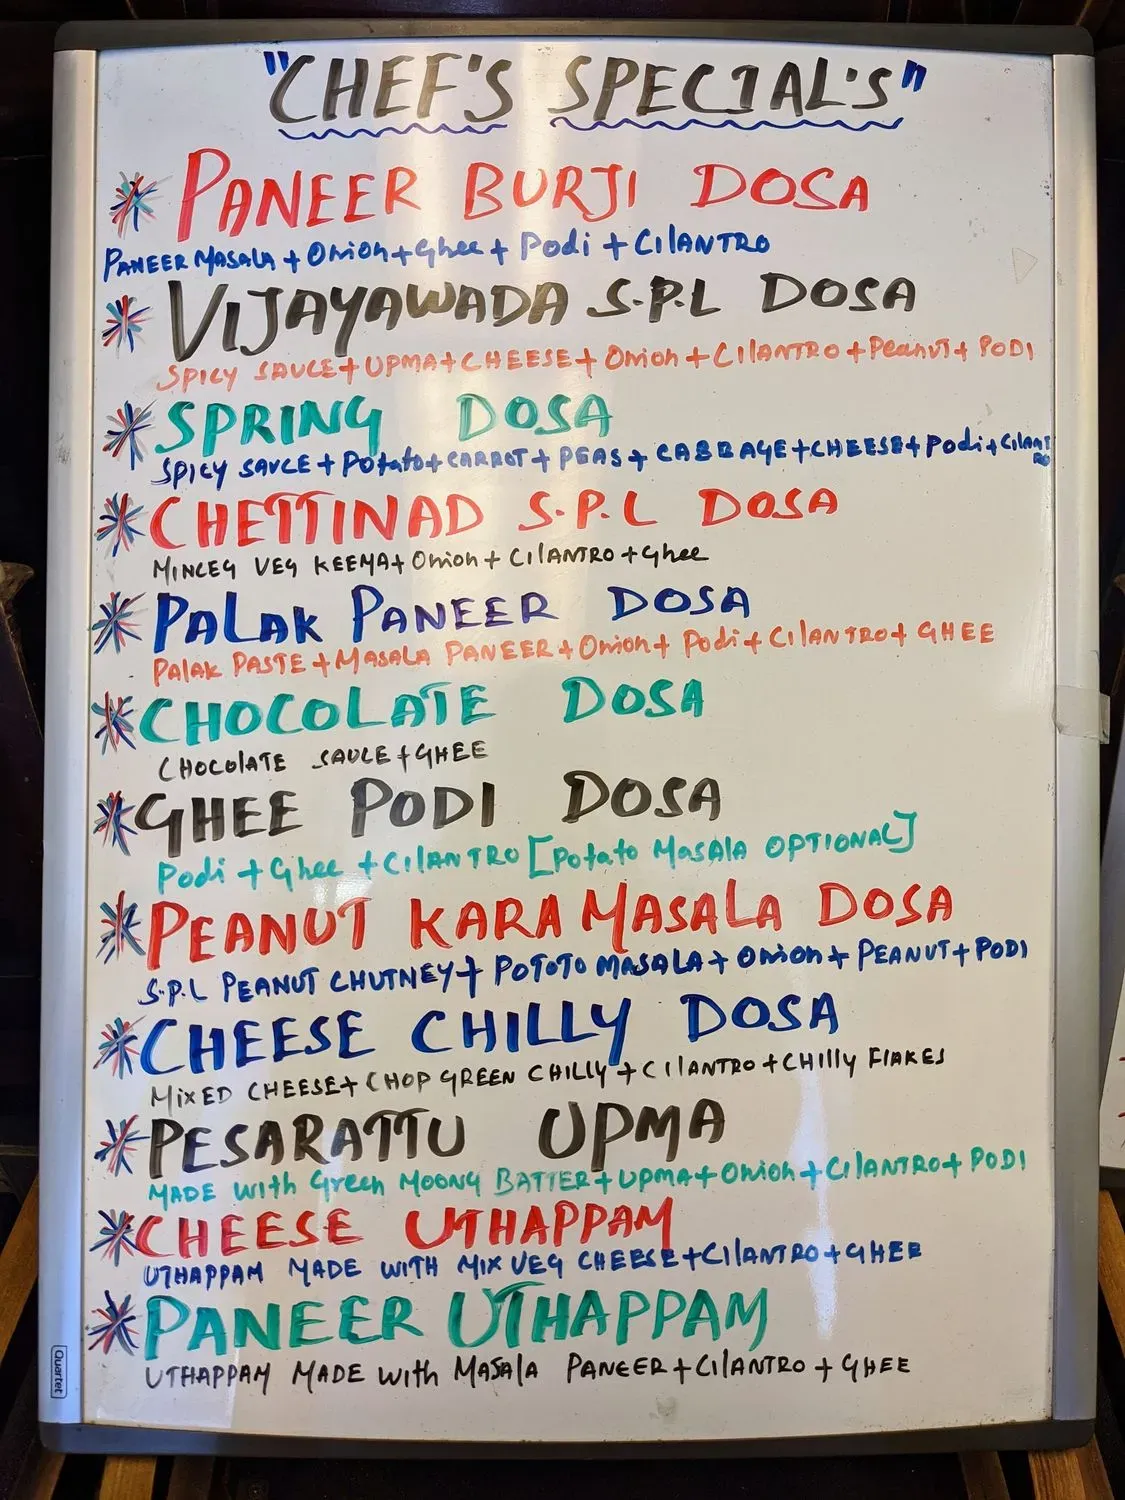 "CHEF'S SPECIAL'S"
PANEER BURJI DOSA
PANEER MASALA + Onion + Ghee + Podi + CILANTRO
VIJAYAWADA S.P.L DOSA
SPICY SAUCE + UPMA + CHEESE + Onion + CILANTRO + Peanut + PODI
SPRING DOSA
SPICY SAUCE + Potato + CARROT + PEAS + CABBAGE + CHEESE + Podi + CILANTRO
CHETTINAD S.P.L DOSA
MINCEG VEG KEEMA + Onion + CILANTRO + Ghee
PALAK PANEER DOSA
PALAK PASTE + MASALA PANEER + Onion + Podi + CILANTRO + GHEE
CHOCOLATE DOSA
CHOCOLATE SAUCE + GHEE
GHEE PODI DOSA
Podi + Ghee + CILANTRO [Potato MASALA OPTIONAL]
PEANUT KARA MASALA DOSA
S.P.L PEANUT CHUTNEY + POTOTO MASALA + Onion + PEANUT + PODI
CHEESE CHILLY DOSA
MIXED CHEESE + CHOP GREEN CHILLY + CILANTRO + CHILLY FLAKES
PESARATTU UPMA
MADE WITH Green MOONG BATTER + UPMA + Onion + CILANTRO + PODI
CHEESE UTHAPPAM
UTHAPPAM MADE WITH MIX VEG CHEESE + CILANTRO + GHEE
PANEER UTHAPPAM
UTHAPPAM MADE with MASALA PANEER + CILANTRO + GHEE
Quartet